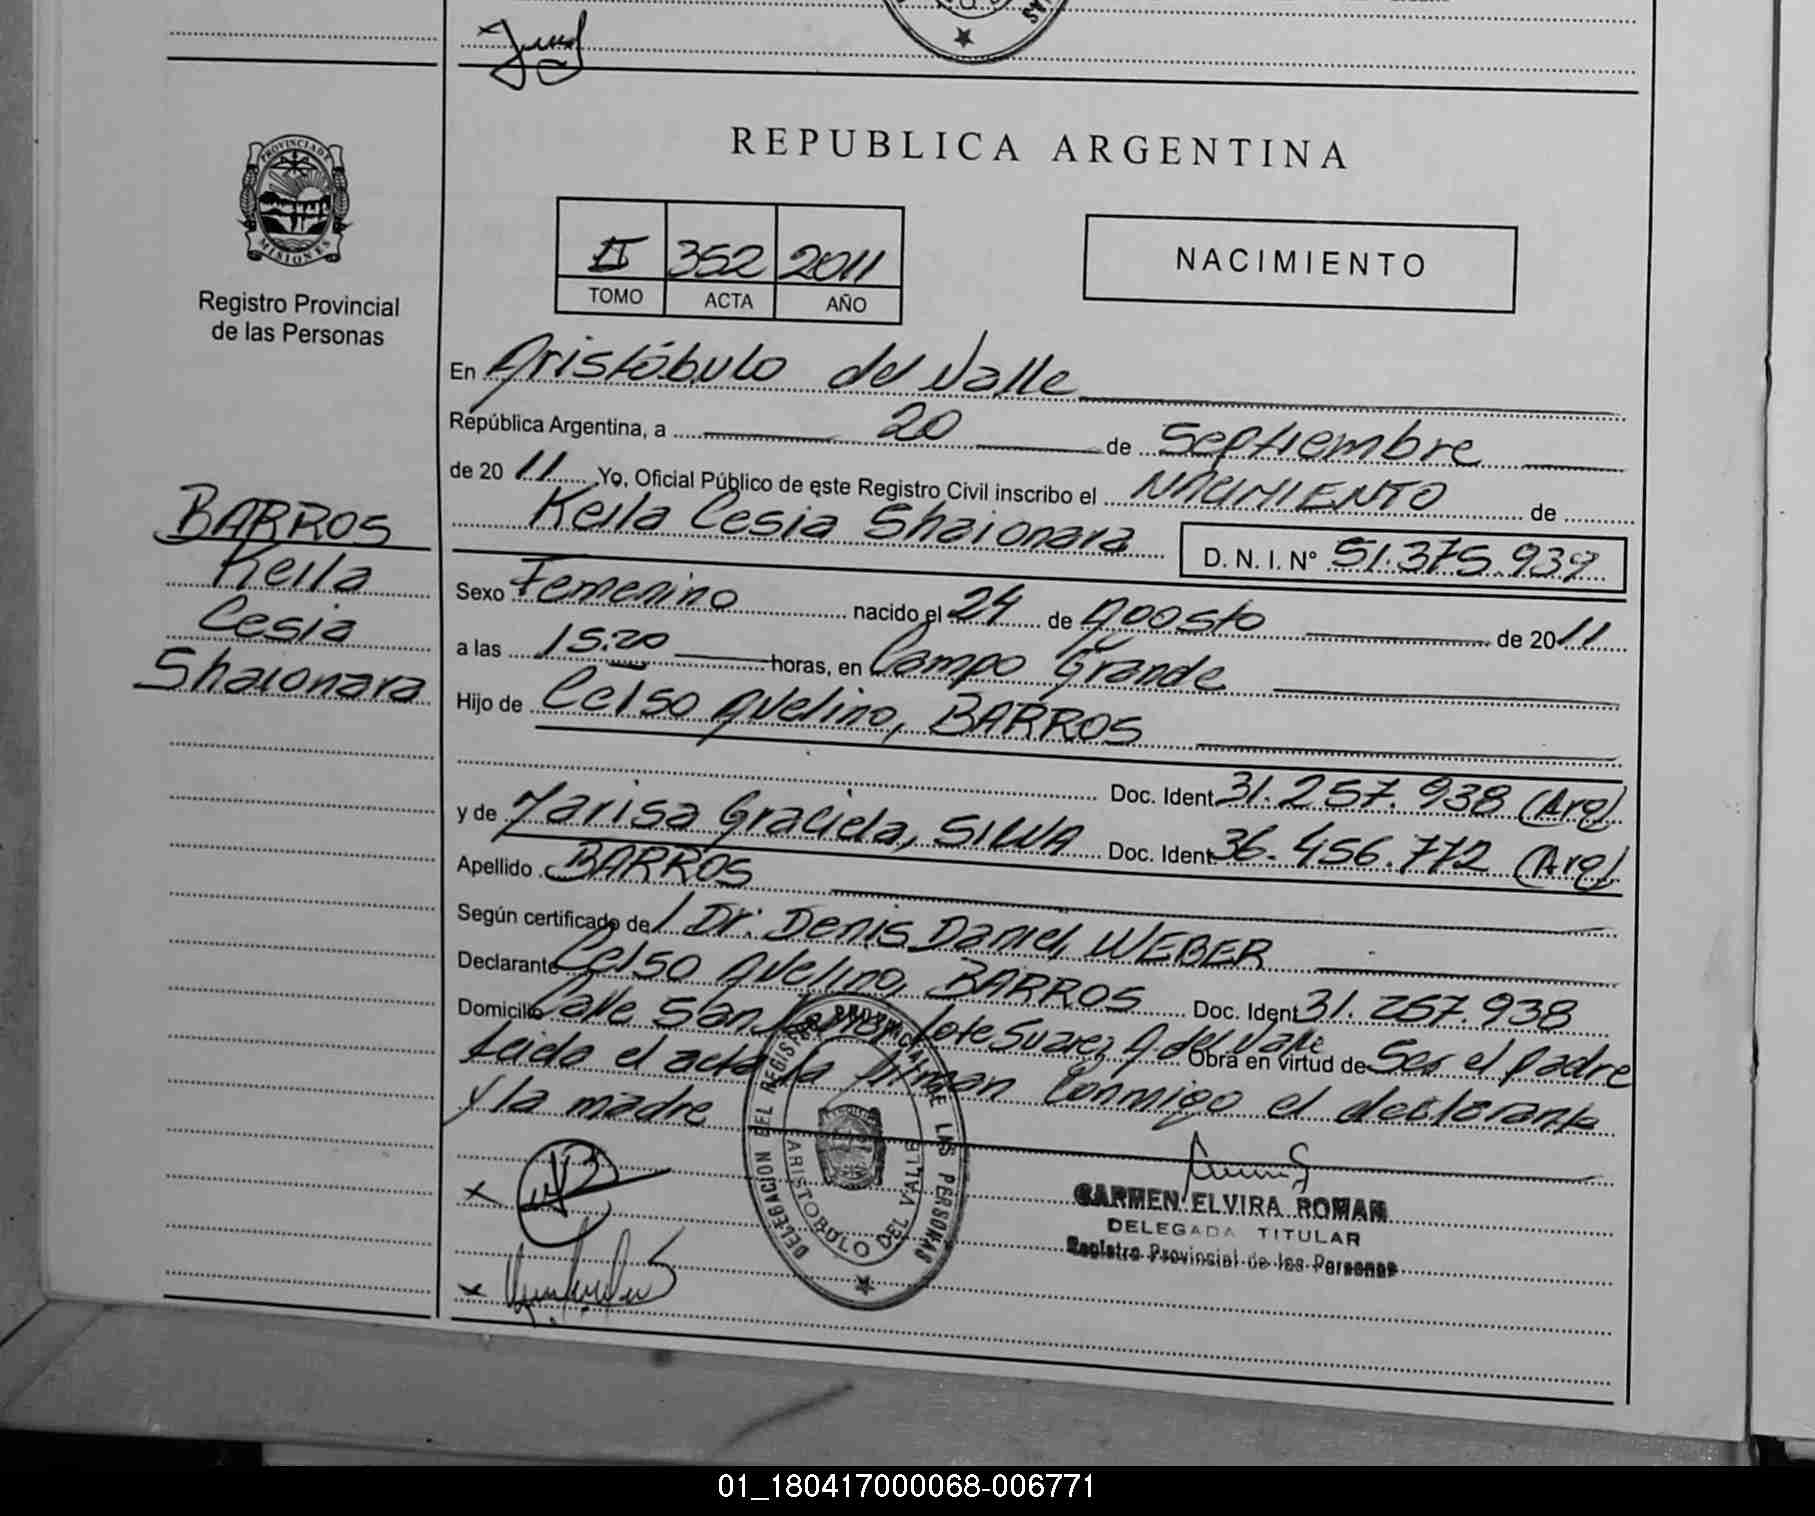 REPUBLICA ARGENTINA
PROVINCIA DE MISIONES
Registro Provincial
de las Personas
II 352 2011
TOMO ACTA AÑO
NACIMIENTO
En Aristóbulo del Valle
República Argentina, a 20 de Septiembre
de 2011 Yo, Oficial Público de este Registro Civil inscribo el NACIMIENTO de
Keila Cesia Shaionara D. N. I. N° 51.375.939
BARROS
Keila
Cesia
Shaionara
Sexo Femenino nacido el 24 de Agosto de 2011
a las 15:20 horas, en Campo Grande
Hijo de Celso Avelino, BARROS
Doc. Ident 31.257.938 (Arg)
y de Marisa Graciela, SILVA Doc. Ident 36.456.772 (Arg)
Apellido BARROS
Según certificado de / Dr. Denis Daniel, WEBER
Declarante Celso Avelino, BARROS Doc. Ident 31.257.938
Domicilio Calle San Lote Suarez, A. del Valle Obra en virtud de Ser el padre
Leida el acta la firman conmigo el declarante
y la madre
DELEGACION DEL REGISTRO PROVINCIAL DE LAS PERSONAS
ARISTOBULO DEL VALLE
CARMEN ELVIRA ROMAN
DELEGADA TITULAR
Registro Provincial de las Personas
01_180417000068-006771